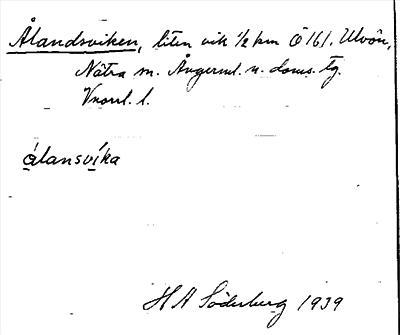 Ålandsviken, liten vik ½ km Ö 161. Ulvön,
Nätra sn. Ångerml. n. doms. tg.
Vnorrl. l.
álansvíka
H A Söderberg 1939